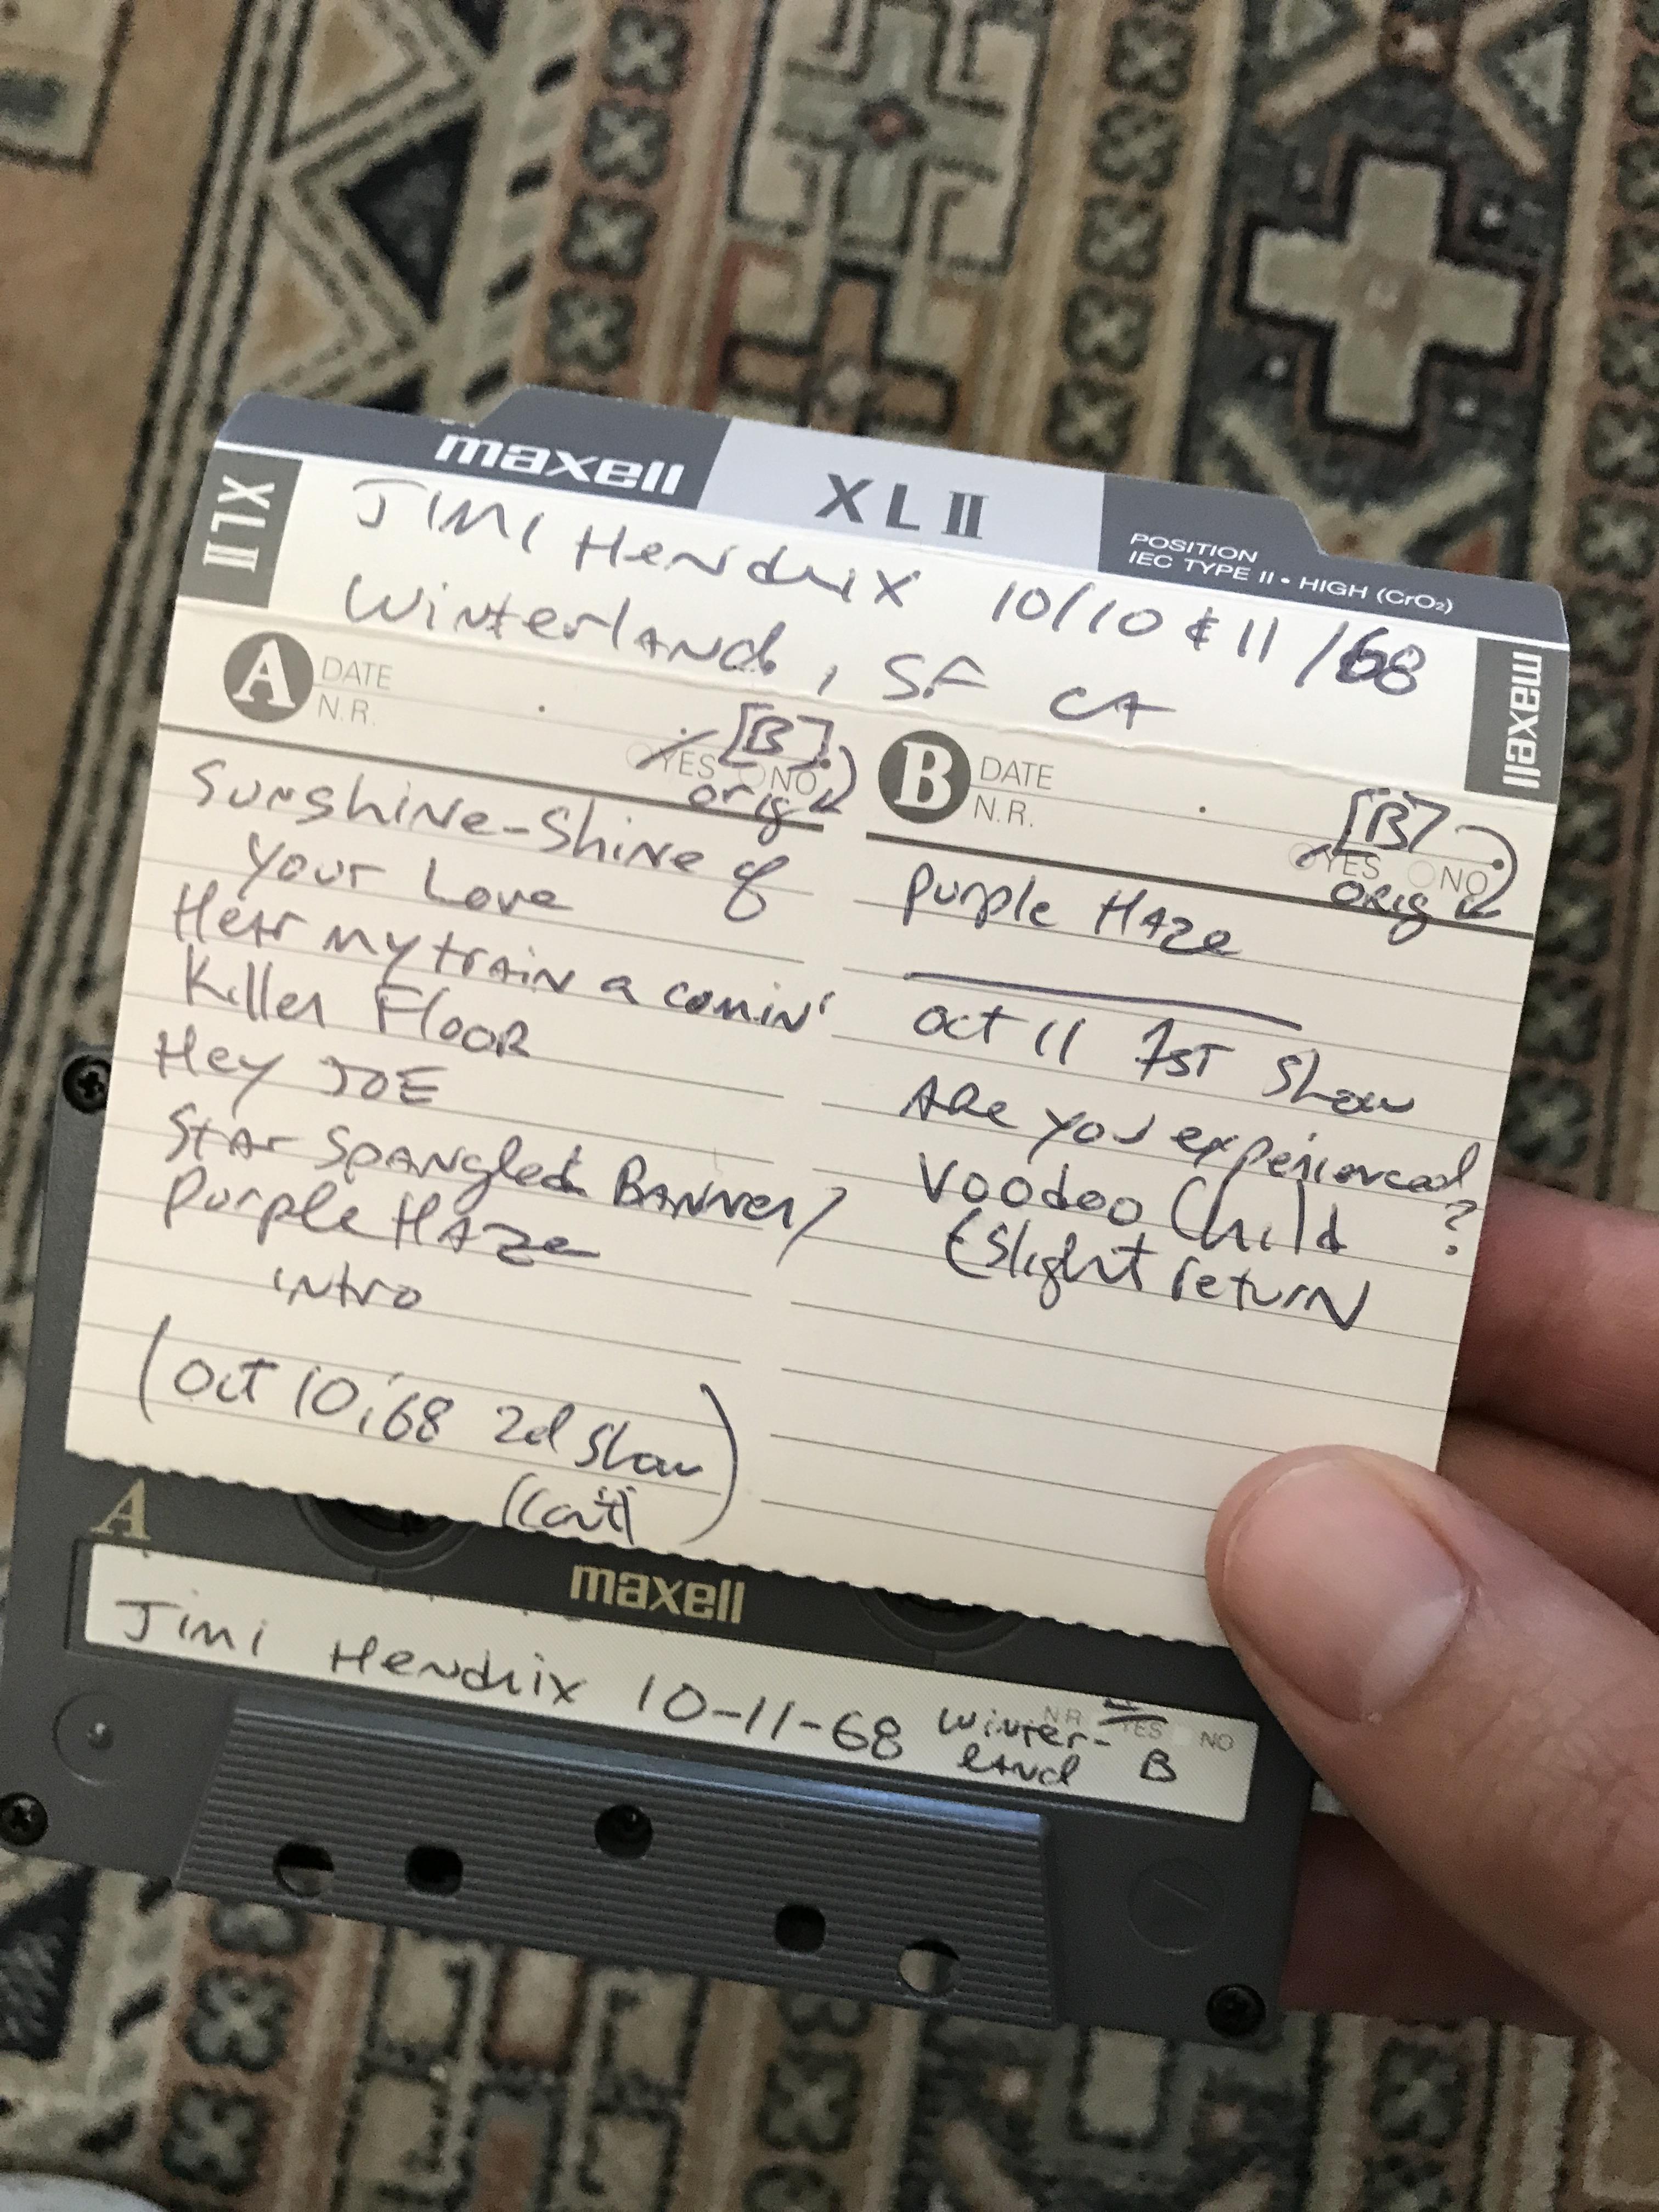 maxell XL II
POSITION
IEC TYPE II • HIGH (CrO₂)
XL II
maxell
JIMI HendRIX 10/10 & 11/68
WinterLAND, SF CA
A DATE
N.R.
YES NO
[B]
orig
SUNShiNe-Shine of
your Love
HeAr my trAiN a comin'
Killer FlooR
Hey JOE
StAr SpANgled BANNer/
Purple HAZe
intro
(Oct 10, '68 2d Show
(Con't)
B DATE
N.R.
YES NO
[B]
ORig
Purple HAZe
Oct 11 1ST Show
ARe you experienced
?
Voodoo Child
(Slight return
A
maxell
Jimi Hendrix 10-11-68 Winter-
lAnd B
N.R. YES NO